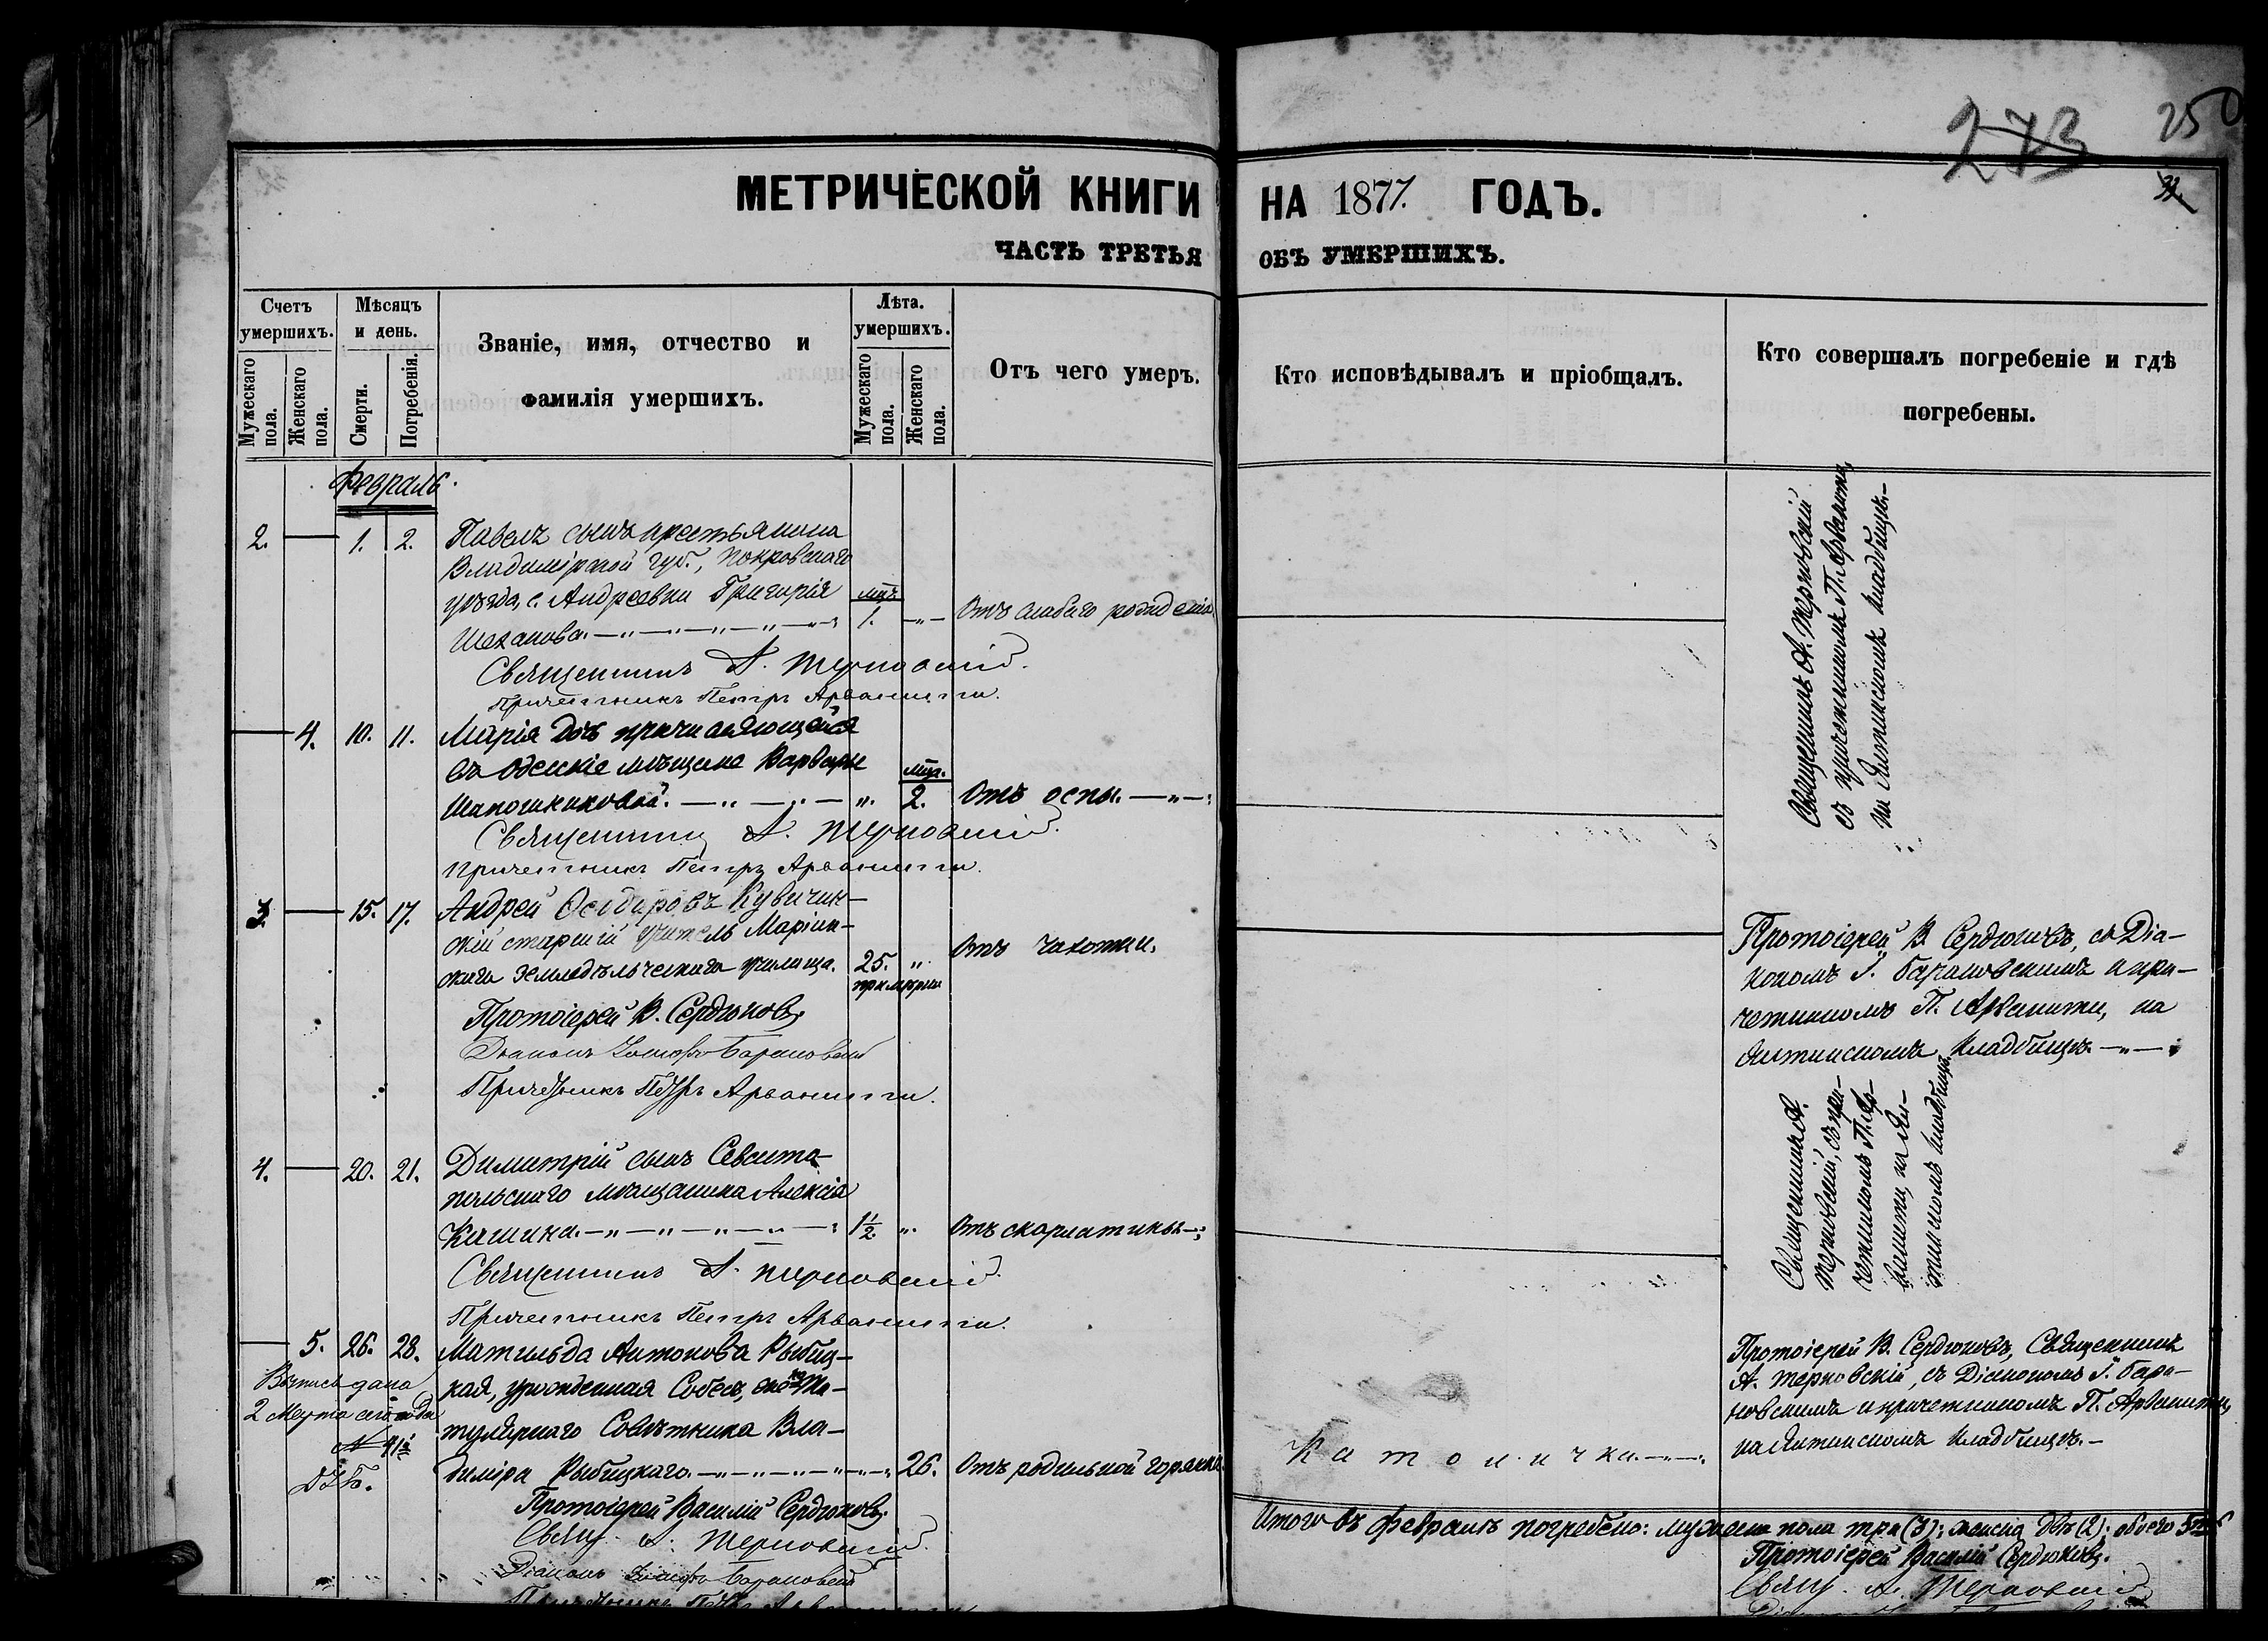 273 250
МЕТРИЧЕСКОЙ КНИГИ НА 1877. ГОДЪ.
ЧАСТЬ ТРЕТЬЯ ОБЪ УМЕРШИХЪ.
Счетъ умершихъ.
Мужескаго пола.
Женскаго пола.
Мѣсяцъ и день.
Смерти.
Погребенія.
Званіе, имя, отчество и
фамилія умершихъ.
Лѣта. умершихъ.
Мужескаго пола.
Женскаго пола.
Отъ чего умеръ.
Кто исповѣдывалъ и пріобщалъ.
Кто совершалъ погребеніе и гдѣ
погребены.
Февраль.
2. — 1. 2. Павелъ сынъ крестьянина
Владимірской губ., Покровскаго
уѣзда, с. Андреевки Григорія мцъ
1. Отъ слабаго рожденія.
Священникъ А. Терновскій.
Причетникъ Петръ Арванити.
Священникъ А. Терновскій
съ причетникомъ П. Арванити,
на Ялтинскомъ кладбищѣ.—
— 4. 10. 11. Марія дочь причисляющейся
въ Одесскіе мѣщане Варвары мца.
Шапошниковой. — „ — „ — „. 2. Отъ оспы. — „ —
Священникъ А. Терновскій.
Причетникъ Петръ Арванити.
3. — 15. 17. Андрей
скій старшій учитель Маріин-
скаго земледѣльческаго училища. 25. „ Отъ чахотки.
примѣрно
Протоіерей В. Сердюковъ.
Діаконъ Іосифъ Барановскій
Причетникъ Петръ Арванити.
Протоіерей В. Сердюковъ, съ Діа-
кономъ І. Барановскимъ и при-
четникомъ П. Арванити, на
Ялтинскомъ кладбищѣ. — „ —
4. — 20. 21. Димитрій сынъ Севасто-
польскаго мѣщанина Алексія
1½ „ Отъ скарлатины —
Священникъ А. Терновскій.
Причетникъ Петръ Арванити.
Священникъ А.
Терновскій, съ при-
четникомъ П. Ар-
ванити, на Ял-
тинскомъ кладбищѣ.
— 5. 26. 28. Матильда Антонова Рыбиц-
кая, урожденная Собек, жена Ти-
тулярнаго Совѣтника Вла-
диміра Рыбицкаго. — „ — „ — „ — 26. Отъ родильной горячки.
Выпись дана
2 Марта сего года
№ 41
Протоіерей Василій Сердюковъ.
Свящ. А. Терновскій.
Діаконъ Іосифъ Барановскій
Причетникъ Петръ
Католичка. — „ —
Протоіерей В. Сердюковъ, Священникъ
А. Терновскій, съ Діакономъ І. Бара-
новскимъ и причетникомъ П. Арванити,
на Ялтинскомъ кладбищѣ.—
Итого въ февралѣ погребено: мужеска пола три (3); женска двѣ (2); обоего 5
Протоіерей Василій Сердюковъ.
Свящ. А. Терновскій